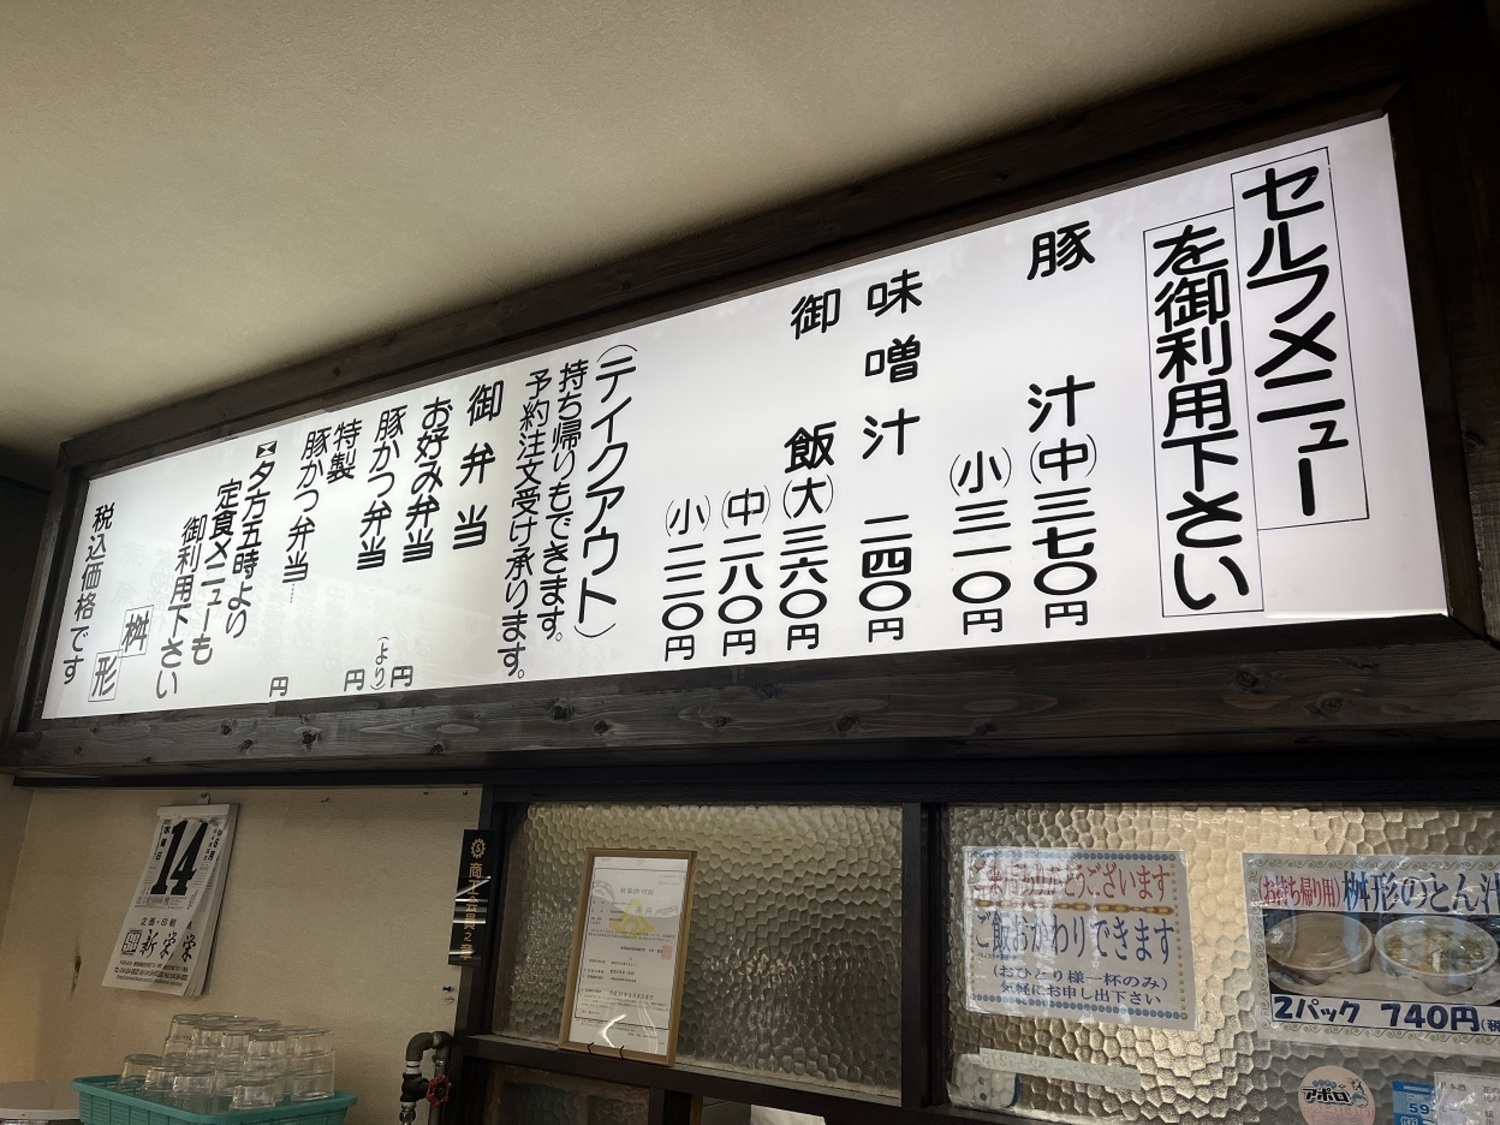 セルフメニュー
を御利用下さい
豚汁(中)三七〇円
(小)三一〇円
味噌汁 二四〇円
御飯(大)三六〇円
(中)二八〇円
(小)二二〇円
(テイクアウト)
持ち帰りもできます。
予約注文受け承ります。
御弁当
お好み弁当 円
(より)
豚かつ弁当 円
特製
豚かつ弁当…… 円
夕方五時より
定食メニューも
御利用下さい
桝形
税込価格です
6月
14
木曜日
企画・印刷
新栄
商工会員之章
ご来店ありがとうございます
ご飯おかわりできます
(おひとり様一杯のみ)
気軽にお申し出下さい
(お持ち帰り用)桝形のとん汁
2パック 740円(税
アポロ
59-